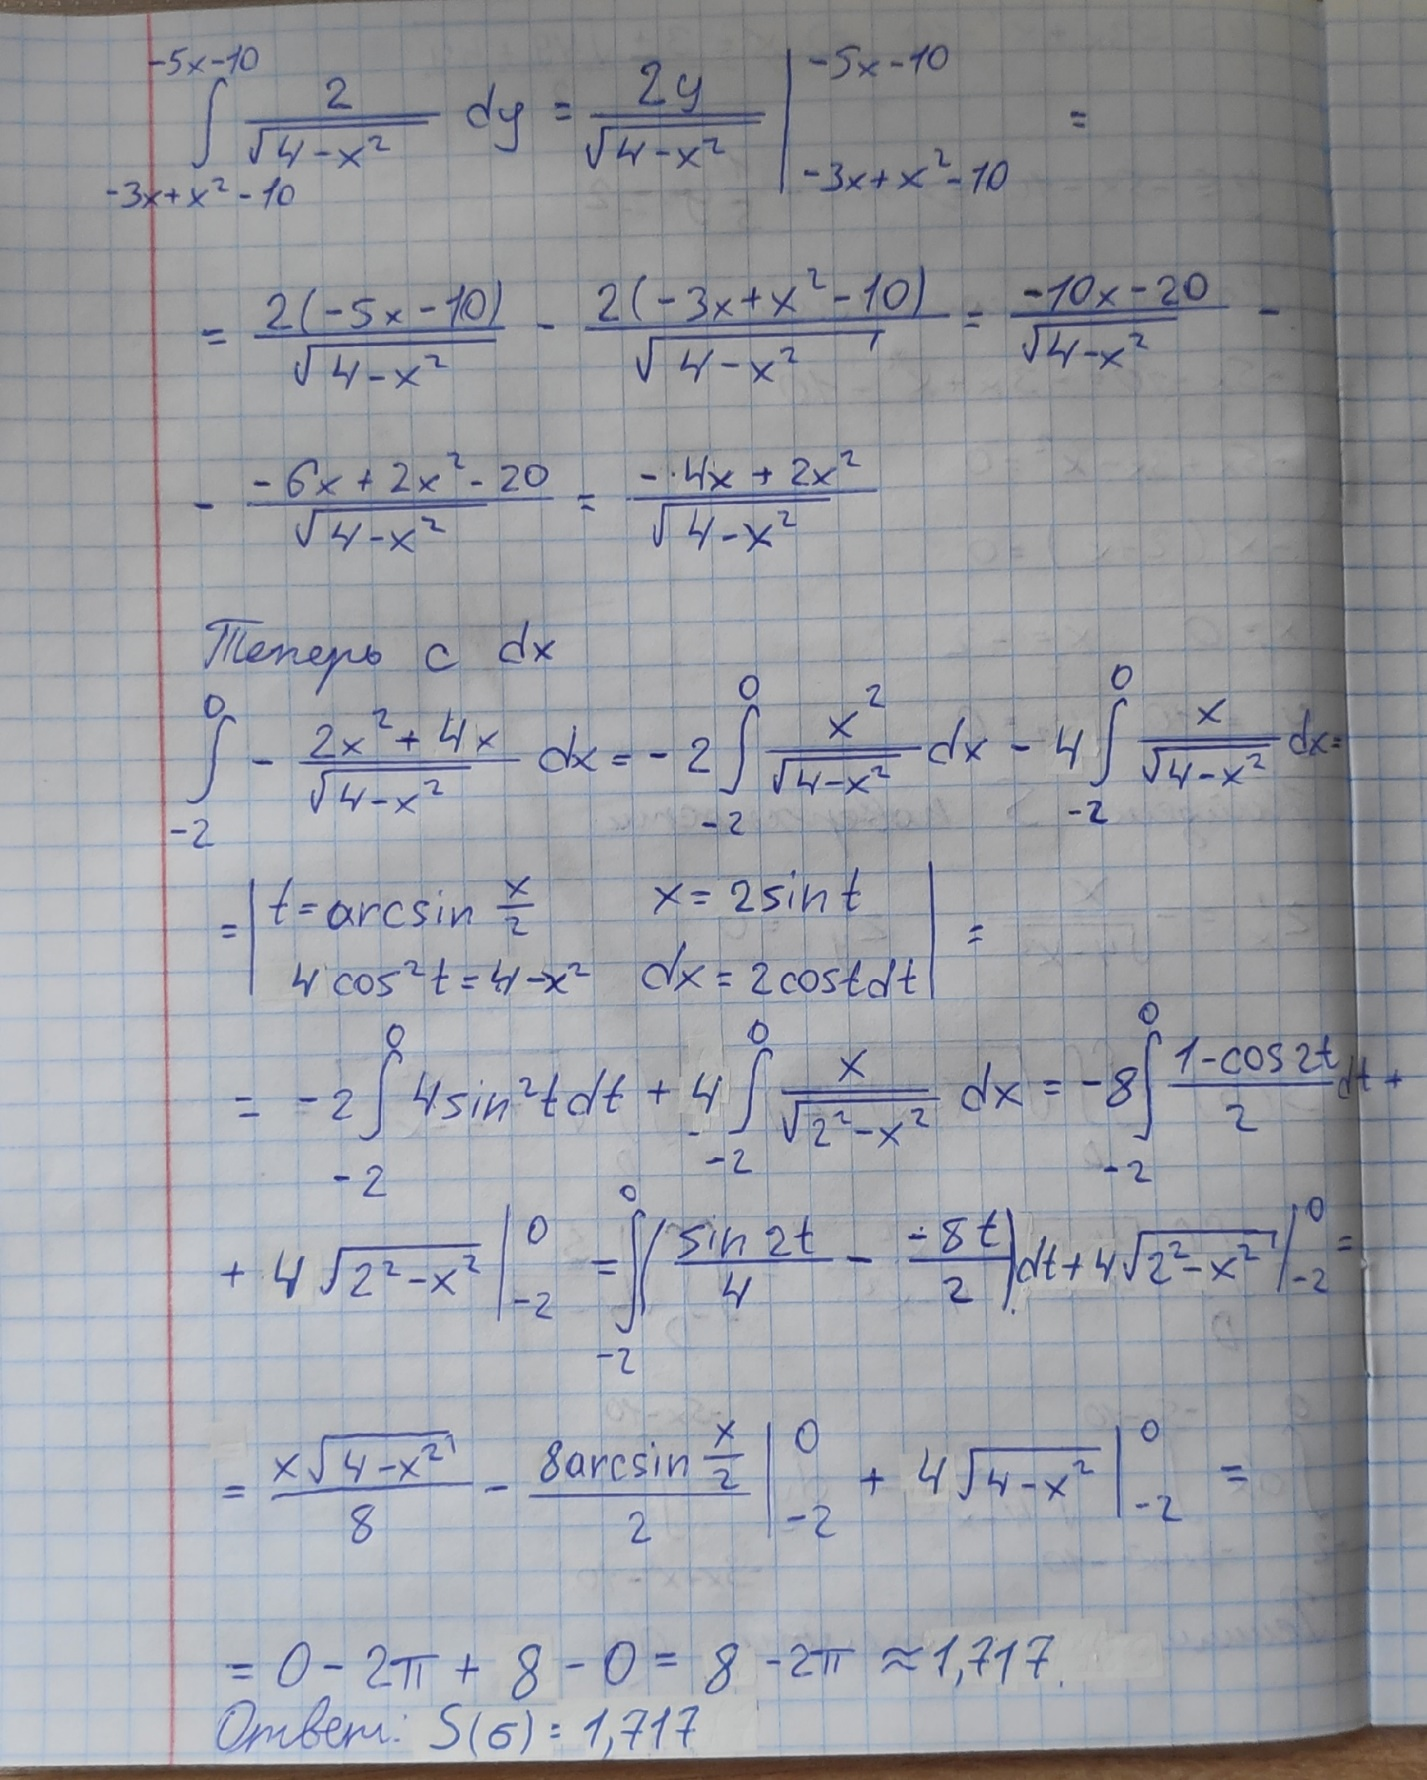 ∫_{-3x+x²-10}^{-5x-10} 2/√(4-x²) dy = 2y/√(4-x²) |_{-3x+x²-10}^{-5x-10} =
= 2(-5x-10)/√(4-x²) - 2(-3x+x²-10)/√(4-x²) = (-10x-20)/√(4-x²) -
- (-6x+2x²-20)/√(4-x²) = (-4x+2x²)/√(4-x²)
Теперь с dx
∫_{-2}^{0} - (2x²+4x)/√(4-x²) dx = -2 ∫_{-2}^{0} x²/√(4-x²) dx - 4 ∫_{-2}^{0} x/√(4-x²) dx =
= | t = arcsin x/2   x = 2sin t
4cos²t = 4-x²   dx = 2costdt | =
= -2 ∫_{-2}^{0} 4sin²tdt + 4 ∫_{-2}^{0} x/√(2²-x²) dx = -8 ∫_{-2}^{0} (1-cos2t)/2 dt +
+ 4√(2²-x²) |_{-2}^{0} = ∫_{-2}^{0} (sin2t/4 - -8t/2) dt + 4√(2²-x²) |_{-2}^{0} =
= x√(4-x²)/8 - 8arcsin x/2 / 2 |_{-2}^{0} + 4√(4-x²) |_{-2}^{0} =
= 0 - 2π + 8 - 0 = 8 - 2π ≈ 1,717.
Ответ: S(σ) = 1,717